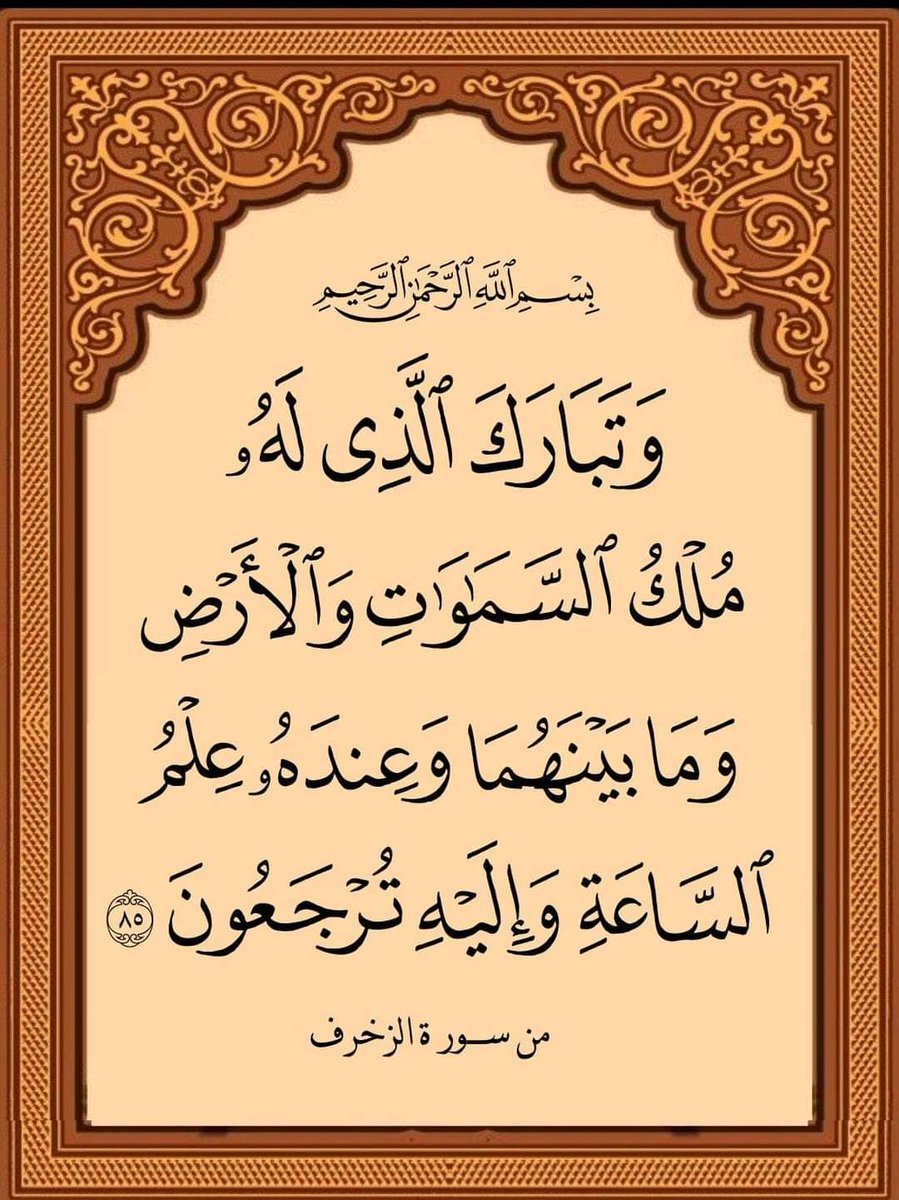 بِسْمِ ٱللَّهِ ٱلرَّحْمَٰنِ ٱلرَّحِيمِ
وَتَبَارَكَ ٱلَّذِى لَهُۥ
مُلْكُ ٱلسَّمَٰوَٰتِ وَٱلْأَرْضِ
وَمَا بَيْنَهُمَا وَعِندَهُۥ عِلْمُ
ٱلسَّاعَةِ وَإِلَيْهِ تُرْجَعُونَ ٨٥
من سورة الزخرف